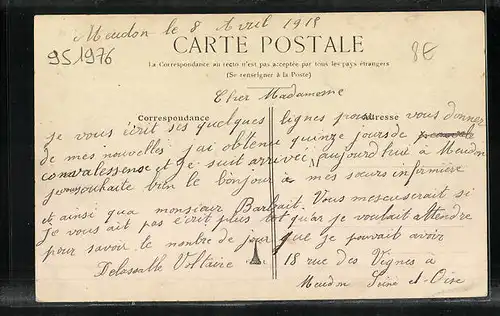 Meudon le 8 Avril 1918
951976
8€
CARTE POSTALE
La Correspondance au recto n'est pas acceptée par tous les pays étrangers
(Se renseigner à la Poste)
Cher Madamome
Correspondance
Adresse
je vous écrit ses quelques lignes pour vous donner
de mes nouvelles j'ai obtenu quinze jours de
convalessense et je suit arrivée aujourd hui a Meudon
souhaite bien le bonjour a mes sœurs infirmière
et ainsi qua monsiuer Barbait. Vous mescuserait si
je vous ait pas écrit plus tot quar je voulait attendre
pour savoir le nonbre de jour que je pouvait avoir
Delassalle Voltaire 18 rue des Vignes a
Meudon Seine et-Oise